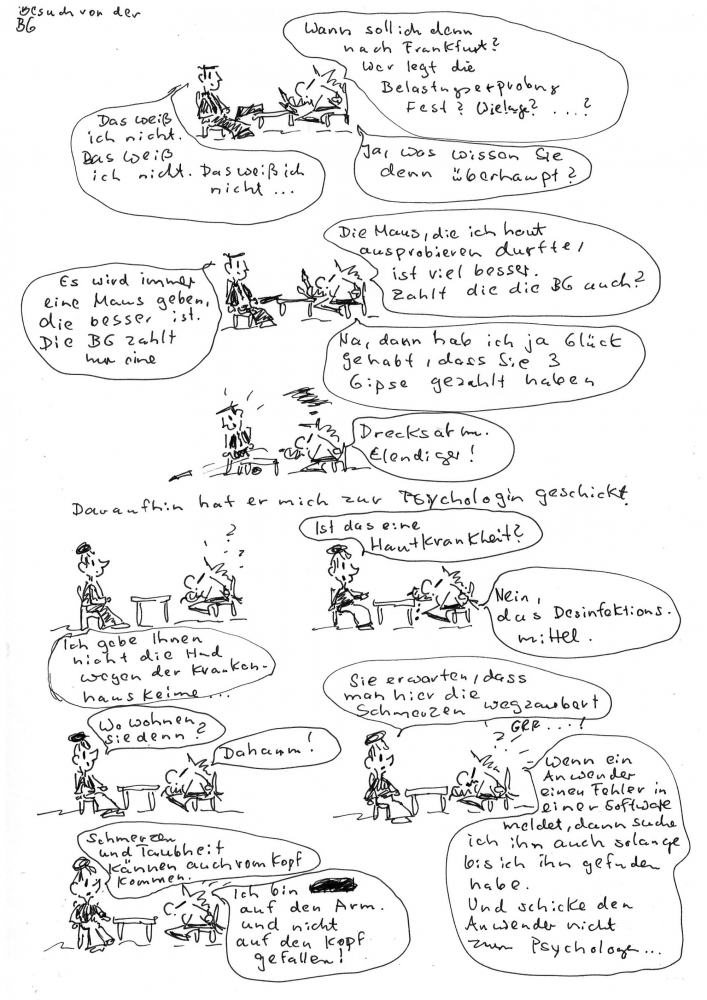 Besuch von der
BG
Wann soll ich denn
nach Frankfurt?
Wer legt die
Belastungserprobung
Fest? Wielange? ....?
Das weiß
ich nicht.
Das weiß
ich nicht. Das weiß ich
nicht ...
Ja, was wissen Sie
denn überhaupt?
Die Maus, die ich heut
ausprobieren durfte,
ist viel besser.
Zahlt die die BG auch?
Es wird immer
eine Maus geben,
die besser ist.
Die BG zahlt
nur eine
Na, dann hab ich ja Glück
gehabt, dass Sie 3
Gipse gezahlt haben
Drecksarm.
Elendiger!
Daraufhin hat er mich zur Psychologin geschickt.
?
Ist das eine
Hautkrankheit?
Nein,
das Desinfektions-
mittel.
Ich gebe Ihnen
nicht die Hand
wegen der Kranken-
hauskeime...
Wo wohnen
sie denn?
Daham!
Sie erwarten, dass
man hier die
Schmerzen wegzaubert
? GRR...!
Wenn ein
Anwender
einen Fehler in
einer Software
meldet, dann suche
ich ihn auch solange
bis ich ihn gefunden
habe.
Und schicke den
Anwender nicht
zum Psychologen...
Schmerzen
und Taubheit
können auch vom Kopf
kommen.
Ich bin
auf den Arm.
und nicht
auf den Kopf
gefallen!